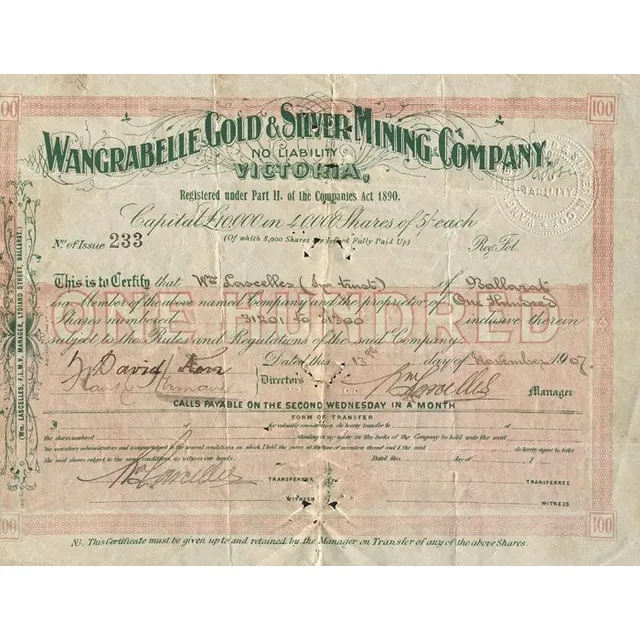 100
100
WANGRABELLE GOLD & SILVER MINING COMPANY,
NO LIABILITY
VICTORIA,
Registered under Part II. of the Companies Act 1890.
Capital £10,000 in 40,000 Shares of 5/- each
(Of which 8,000 Shares are Issued Fully Paid Up)
No. of Issue 233
Reg. Fol.
This is to Certify that Wm Lascelles (In trust) of Ballarat
is a Member of the above named Company and the proprietor of One Hundred
Shares numbered 31201 to 31300 inclusive therein
subject to the Rules and Regulations of the said Company.
ONE HUNDRED
Dated this 13th day of November 1907
David Kerr
Directors
Wm Lascelles
Manager
CALLS PAYABLE ON THE SECOND WEDNESDAY IN A MONTH
FORM OF TRANSFER
of for valuable consideration do hereby transfer to of
the shares numbered standing in my name in the books of the Company to hold unto the said
his executors administrators and assigns subject to the several conditions on which I held the same at the time of execution thereof and I the said do hereby agree to take
the said shares subject to the same conditions, as witness our hands. Dated this day of 1
Wm Lascelles
TRANSFEROR
TRANSFEREE
WITNESS
WITNESS
100
100
NB. This Certificate must be given up to and retained by the Manager on Transfer of any of the above Shares.
(Wm. LASCELLES, F.I.M.V. MANAGER, LYDIARD STREET, BALLARAT.)